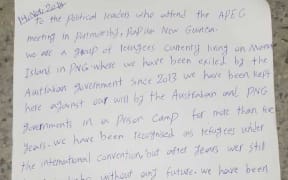 To the political leaders who attend the APEC
meeting in Portmoresby, Papua New Guinea.
We are a group of refugees currently living on Manus
Island in PNG. where we have been exiled by the
Australian government since 2013 we have been kept
here against our will by the Australian and PNG
governments in a Prison Camp for more than five
years. we have been recognised as refugees under
the international convention, but after years wer still
without any future. we have been